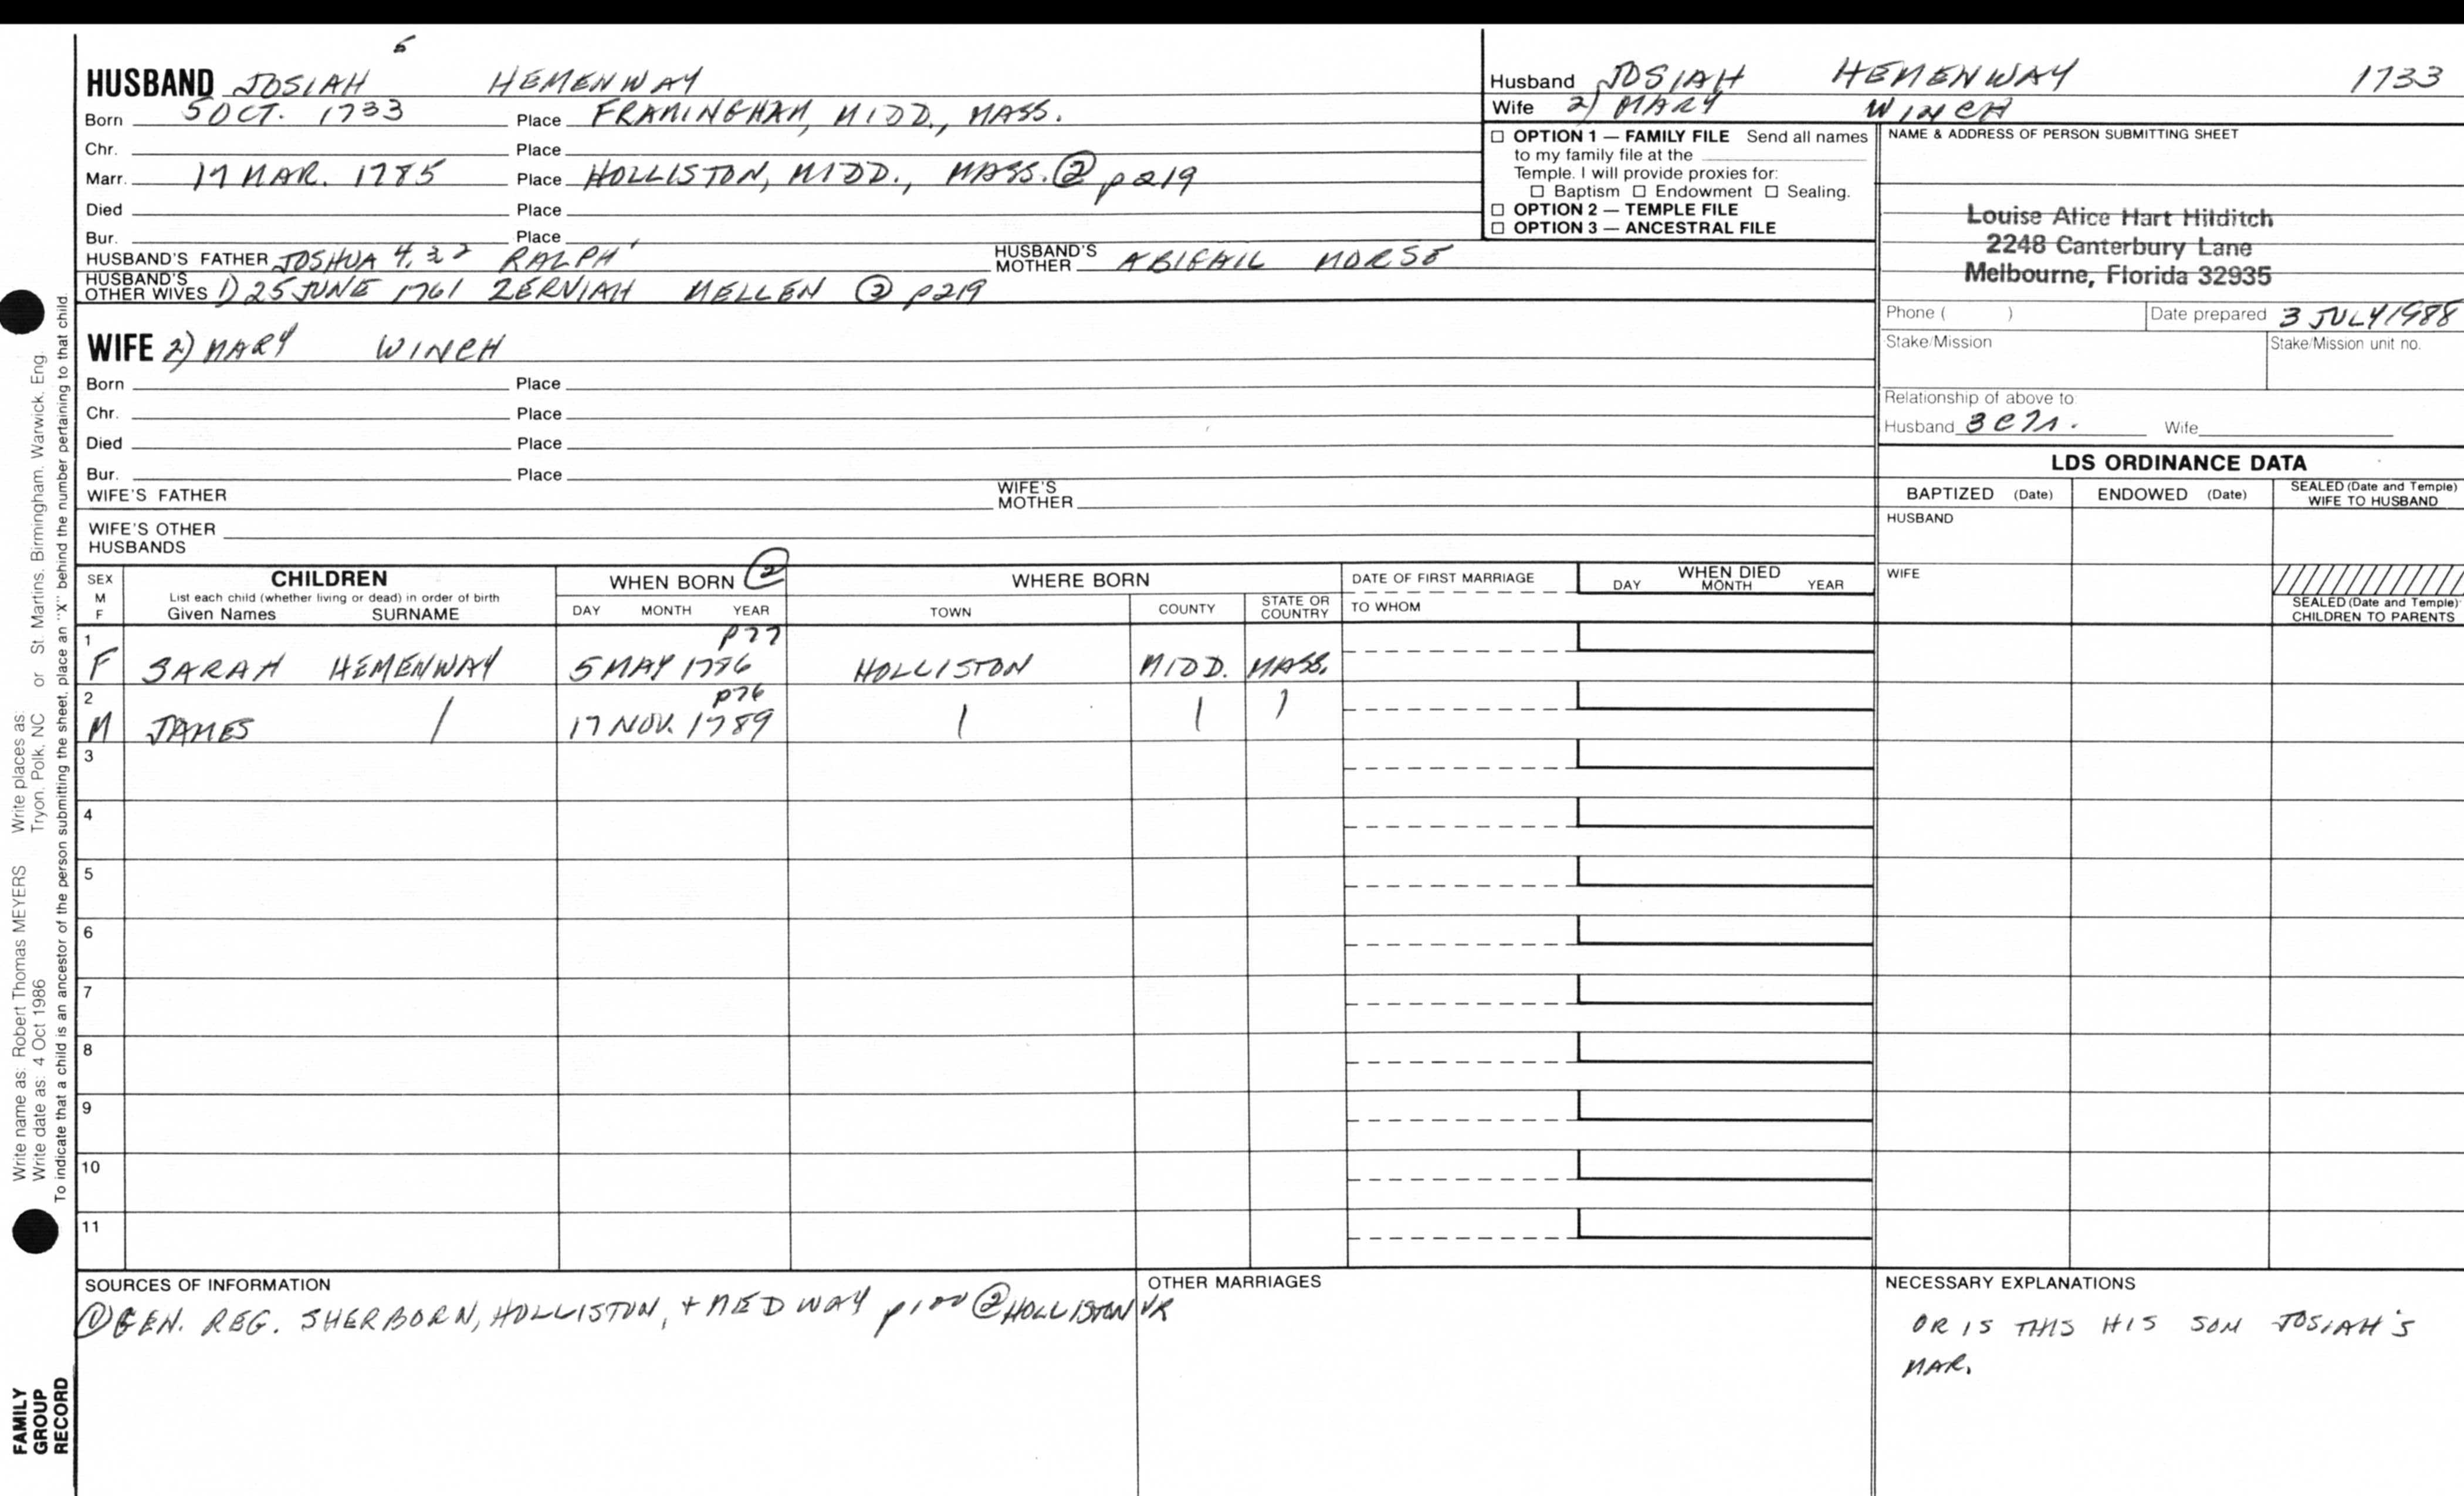 5
HUSBAND JOSIAH HEMENWAY
Born 5 OCT. 1733 Place FRAMINGHAM, MIDD., MASS.
Chr. Place
Marr. 17 MAR. 1785 Place HOLLISTON, MIDD., MASS. ② p219
Died Place
Bur. Place
HUSBAND'S FATHER JOSHUA 4,3,2 RALPH 1 HUSBAND'S MOTHER ABIGAIL MORSE
HUSBAND'S OTHER WIVES 1) 25 JUNE 1761 ZERVIAH MELLEN ② p219
WIFE 2) MARY WINCH
Born Place
Chr. Place
Died Place
Bur. Place
WIFE'S FATHER WIFE'S MOTHER
WIFE'S OTHER HUSBANDS
Husband JOSIAH HEMENWAY 1733
Wife 2) MARY WINCH
☐ OPTION 1 — FAMILY FILE Send all names
to my family file at the
Temple. I will provide proxies for:
☐ Baptism ☐ Endowment ☐ Sealing.
☐ OPTION 2 — TEMPLE FILE
☐ OPTION 3 — ANCESTRAL FILE
NAME & ADDRESS OF PERSON SUBMITTING SHEET
Louise Alice Hart Hilditch
2248 Canterbury Lane
Melbourne, Florida 32935
Phone ( ) Date prepared 3 JULY 1988
Stake/Mission Stake/Mission unit no.
Relationship of above to
Husband 3C7r. Wife
LDS ORDINANCE DATA
BAPTIZED (Date) ENDOWED (Date) SEALED (Date and Temple) WIFE TO HUSBAND
HUSBAND
WIFE
SEALED (Date and Temple) CHILDREN TO PARENTS
SEX M F
CHILDREN
List each child (whether living or dead) in order of birth
Given Names SURNAME
WHEN BORN ②
DAY MONTH YEAR
WHERE BORN
TOWN COUNTY STATE OR COUNTRY
DATE OF FIRST MARRIAGE
TO WHOM
WHEN DIED
DAY MONTH YEAR
1 p77
F SARAH HEMENWAY 5 MAY 1786 HOLLISTON MIDD. MASS.
2 p76
M JAMES / 17 NOV. 1789 | | )
3
4
5
6
7
8
9
10
11
SOURCES OF INFORMATION
① GEN. REG. SHERBORN, HOLLISTON, + MEDWAY p100 ② HOLLISTON VR
OTHER MARRIAGES
NECESSARY EXPLANATIONS
OR IS THIS HIS SON JOSIAH'S
MAR.
Write name as: Robert Thomas MEYERS Write places as:
Write date as: 4 Oct 1986 Tryon, Polk, NC or St. Martins, Birmingham, Warwick, Eng.
To indicate that a child is an ancestor of the person submitting the sheet, place an "X" behind the number pertaining to that child.
FAMILY
GROUP
RECORD